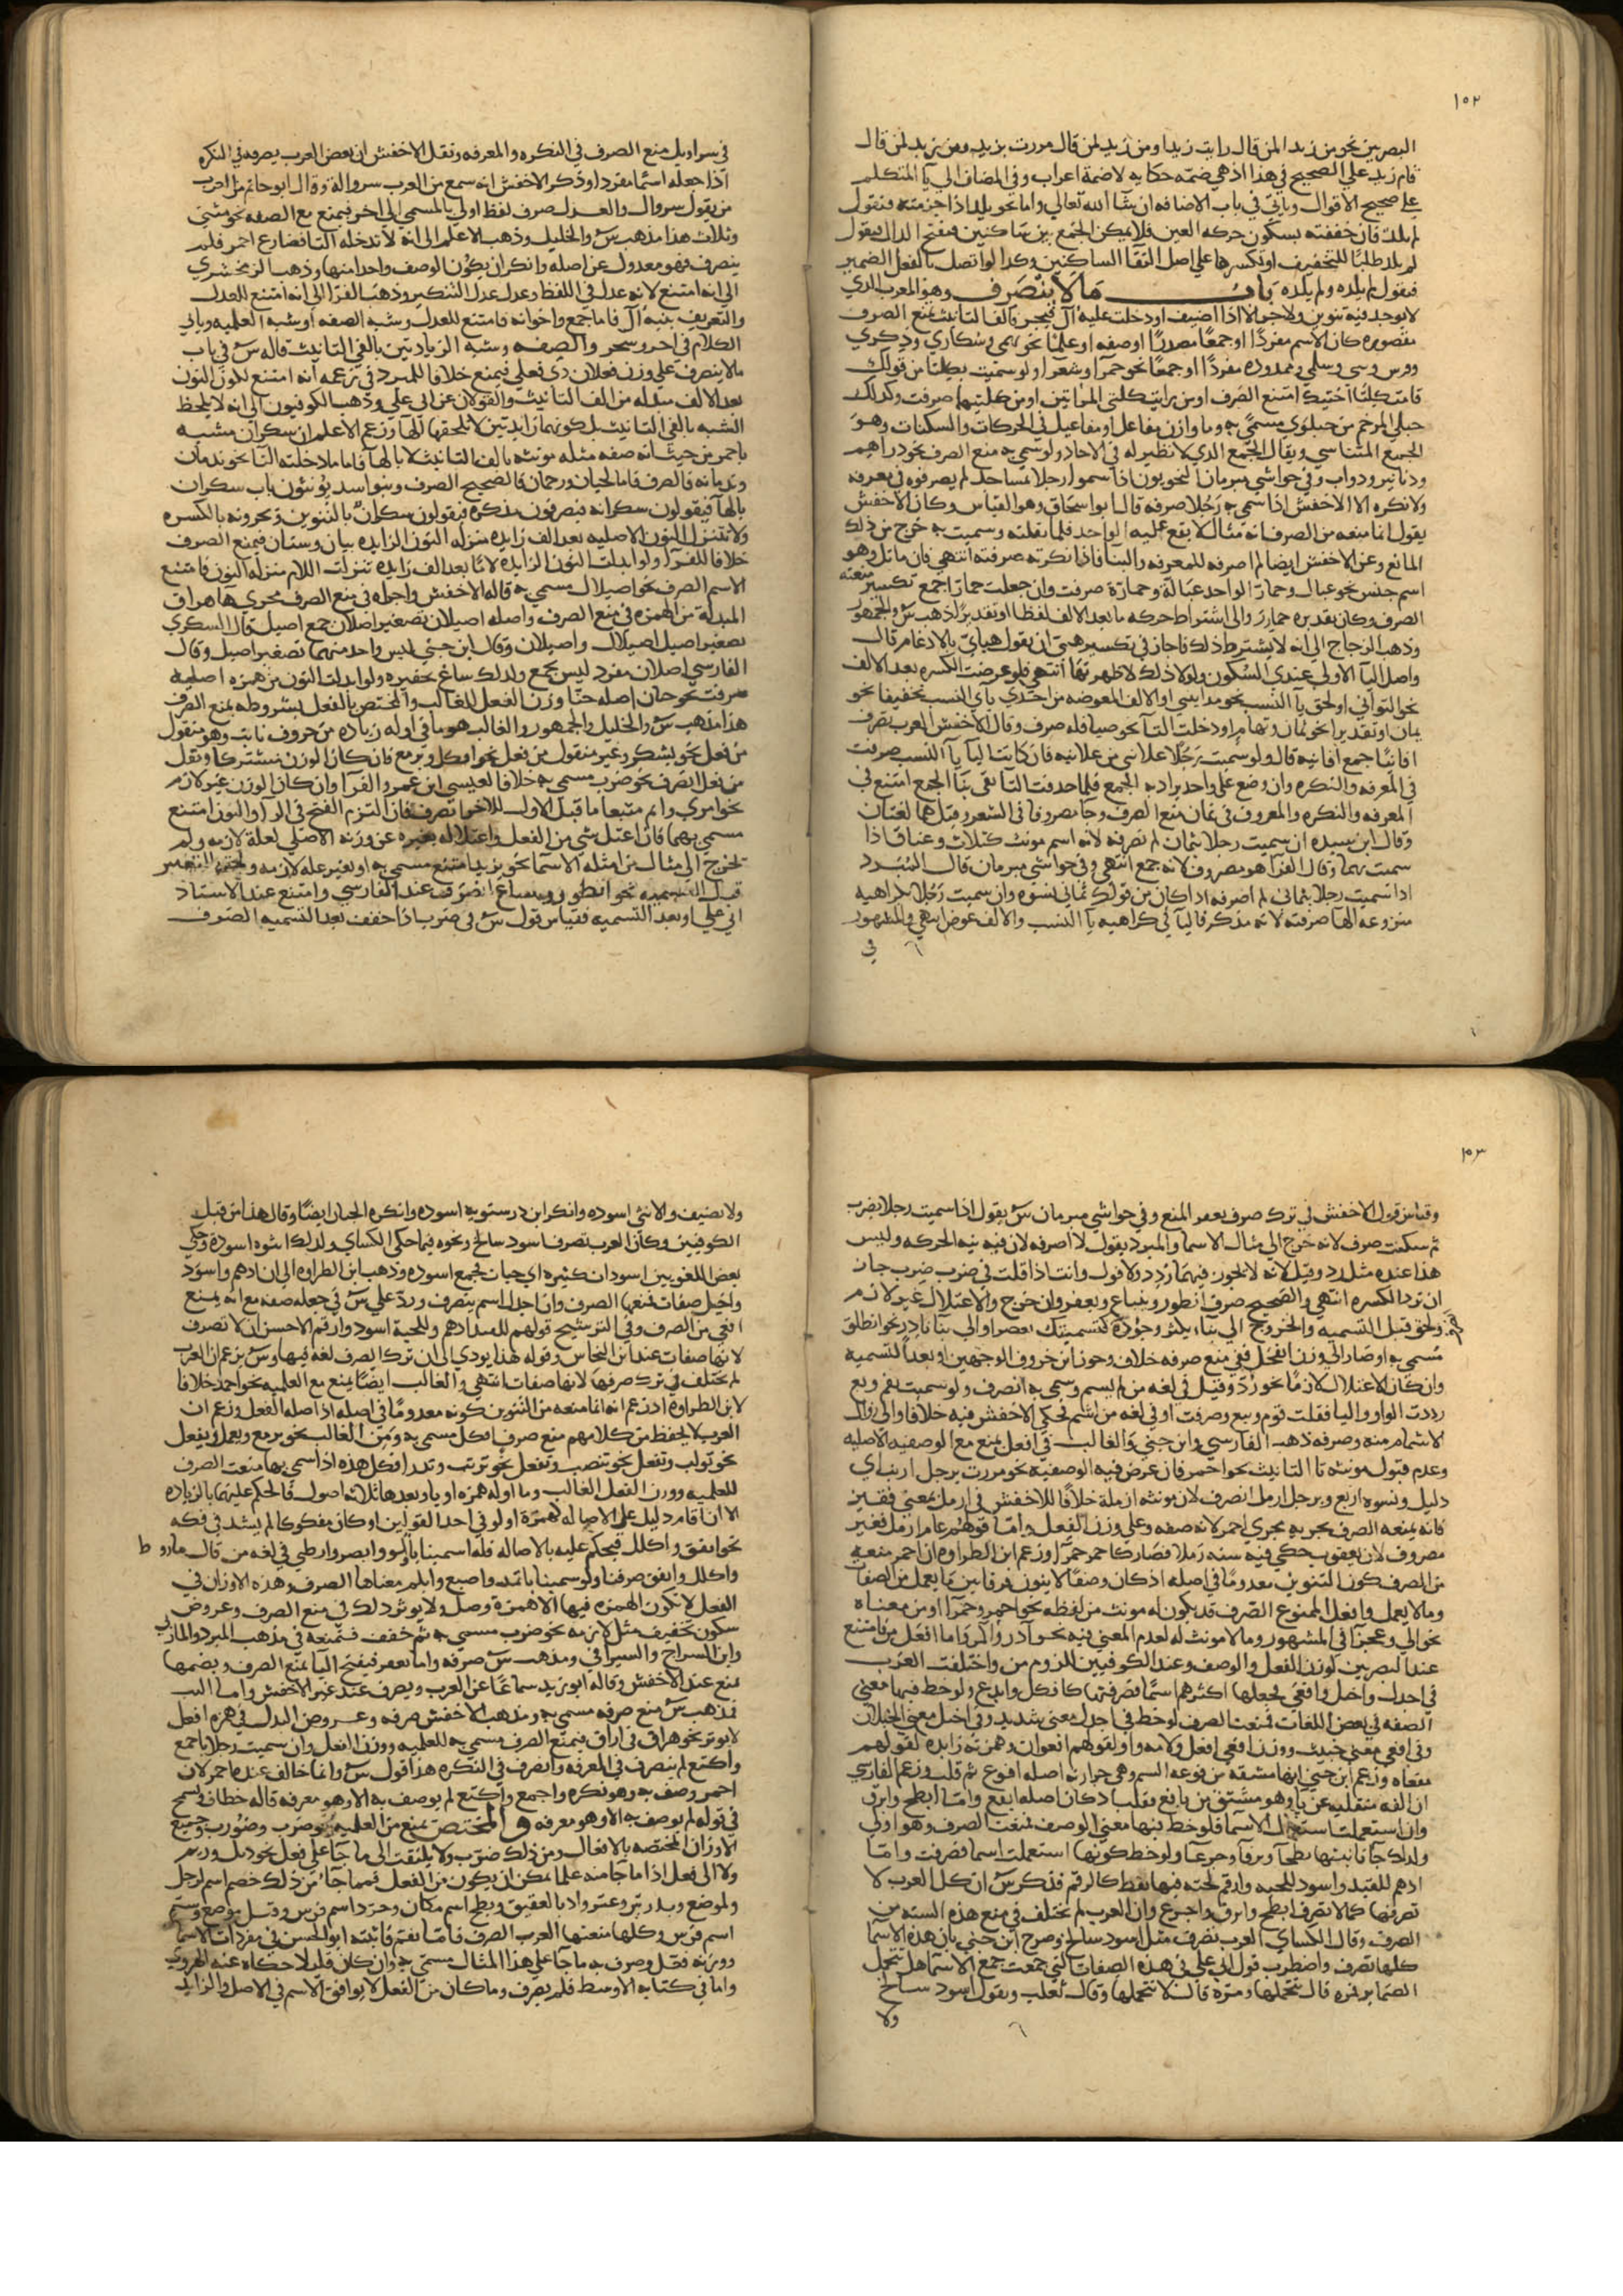 ١٥٢
البصريين نحو من زيدا لمن قال رايت زيدا ومن زيد لمن قال مررت بزيد ومن زيد لمن قال
قام زيد علي الصحيح في هذا اذ هي ضمة حكايه لا ضمة اعراب وفي المضاف الي يا المتكلم
علي صحيح الاقوال وياتي في باب الاضافه ان شا الله تعالي واما نحو يلد اذا جزمته فتقول
لم يلد فان خففته بسكون حركه العين فلا يمكن الجمع بين ساكنين فتفتح الدال فتقول
لم يلد طلبا للتخفيف او تكسرها علي اصل التقا الساكنين وكذا لو اتصل بالفعل الضمير
فتقول لم يلده ولم يلده باب ما لا ينصرف وهو المعرب الذي
لا يوجد فيه تنوين ولا جر الا اذا اضيف او دخلت عليه ال فيجر فالف التانيث تمنع الصرف
مقصوره كان الاسم مفردا او جمعا مصدرا او صفه او علما نحو بهمي وسكاري وذكري
وسلمي وممدوده مفردا او جمعا نحو حمرا وشعرا ولو سميت بكلتا من قولك
قامت كلتا اختيك امتنع الصرف او من رايت كلتي المراتين او من كلتيهما صرفت وكذلك
حبلي المرخم من حبلوي مسمي به وما وازن مفاعل او مفاعيل في الحركات والسكنات وهو
الجمع المتناسي ويقال الجمع الذي لا نظير له في الاحاد ولو سمي به منع الصرف نحو دراهم
ودنانير ودواب وفي حواشي مبرمان النحويون اذا سموا رجلا بمساجد لم يصرفوه في معرفه
ولا نكره الا الاخفش اذا سمي به رجلا صرفه قال ابو اسحاق وهو القياس وكان الاخفش
يقول انما منعه من الصرف انه مثال لا يقع عليه الواحد فلما نقلته وسميت به خرج من ذلك
المانع وعن الاخفش ايضا لم اصرفه للمعرفه والبنا فاذا نكرته صرفته انتهي فان ماثل وهو
اسم جنس نحو عبال وحمار الواحد عبالة وحمارة صرفت وان جعلت حمارا جمع تكسير منعته
الصرف وكان تقديره حمارر والي اشتراط حركه ما بعد الالف لفظا او تقديرا ذهب س والجمهور
وذهب الزجاج الي انه لا يشترط ذلك فاجاز في تكسير هبي ان يقول هبايّ بالادغام قال
واصل اليا الاولي عندي السكون ولولا ذلك لاظهرتها انتهي فلو عرضت الكسره بعد الالف
نحو التواني او لحق يا النسب نحو مدايني او الالف المعوضه من احدي ياي النسب تخفيفا نحو
يمان او تقديرا نحو ثمان وتهام او دخلت التا نحو صياقله صرف وقال الاخفش العرب تصرف
في المعرفه والنكره وان وضع علي واحد يراد به الجمع فلما حذفت التا بقي بنا الجمع امتنع في
المعرفه والنكره والمعروف في ثمان منع الصرف وجا مصروفا في الشعر وقيل هما لغتان
وقال ابن سيده ان سميت رجلا بثمان لم تصرفه لانه اسم مونث كثلاث وعناق اذا
سميت بهما وقال الفرا هو مصروف لانه جمع انتهي وفي حواشي مبرمان قال المبرد
اذا سميت رجلا بثماني لم اصرفه اذا كان من قولك ثماني نسوه وان سميت رجلا بكراهيه
منزوعه الها صرفته لانه مذكر فاليا في كراهيه يا النسب والالف عوض انتهي والمشهور
في
في سراويل منع الصرف في النكره والمعرفه ونقل الاخفش ان بعض العرب يصرفه في النكره
اذا جعله اسما مفردا وذكر الاخفش انه سمع من العرب سروالة وقال ابو حاتم من العرب
من يقول سروال والعدل صرف لفظ اولي بالمسمي الي اخر فيمنع مع الصفه نحو مثني
وثلاث هذا مذهب س والخليل وذهب الاعلم الي انه لا تدخله التا فضارع احمر فلم
ينصرف فهو معدول عن اصله وانكر ان يكون الوصف واحدا منها وذهب الزمخشري
الي انه امتنع لانه عدل في اللفظ وعدل عدل التنكير وذهب الفرا الي انه امتنع للعدل
والتعريف بنيه ال فاما جمع واخواته فامتنع للعدل وشبه الصفه او شبه العلميه وياتي
الكلام في اخر وسحر والصفه وشبه الزيادتين بالفي التانيث قاله س في باب
ما لا ينصرف علي وزن فعلان ذي فعلي فيمنع خلافا للمبرد في زعمه انه امتنع لكون النون
بعد الالف مبدله من الف التانيث والقولان عن ابي علي وذهب الكوفيون الي انه لا يلحظ
الشبه بالفي التانيث بل كونهما زايدتين لا تلحقهما الها وزعم الاعلم ان سكران مشبه
باحمر من حيث انه صفه مثله مونثه بالف التانيث لا بالها فاما ما دخلته التا نحو ندمان
وندمانه فالصرف فاما لحيان ورحمان فالصحيح الصرف وبنو اسد يونثون باب سكران
بالها فيقولون سكرانه فيصرفون مذكره فيقولون سكران بالتنوين ويجرونه بالكسره
ولا تتنزل النون الاصليه بعد الف زايده منزله النون الزايده بيان وسنان فيمنع الصرف
خلافا للفرا ولو ابدلت النون الزايده لاما بعد الف زايده تنزلت اللام منزله النون فامتنع
الاسم الصرف نحو اصيلال مسمي به قاله الاخفش واجراه في منع الصرف مجري ها هراق
المبدله من الهمزه في منع الصرف واصله اصيلان تصغير اصلان جمع اصيل قال السكري
تصغير اصيل اصيلال واصيلان وقال ابن جني ليس واحد منهما تصغير اصيل وقال
الفارسي اصلان مفرد ليس بجمع ولذلك ساغ تحقيره ولو ابدلت النون من همزه اصليه
صرفت نحو حنان اصله حنا وزن الفعل الغالب والمختص بالفعل بشروطه يمنع الصرف
هذا مذهب س والخليل والجمهور والغالب هو ما في اوله زياده من حروف نايت وهو منقول
من فعل نحو يشكر وغير منقول من فعل نحو افكل ويرمع فان كان الوزن مشتركا ونقل
من فعل انصرف نحو ضرب مسمي به خلافا لعيسي ابن عمر والفرا وان كان الوزن غير لازم
نحو امري وابنم متبعا ما قبل الاول للاخر انصرف فان التزم الفتح في الرا والنون امتنع
مسمي بهما فان اعتل شي من الفعل واعتلاله بغيره عن وزنه الاصلي لعلة لازمه ولم
تخرج الي مثال من امثله الاسما نحو يزيد امتنع مسمي به او تغير عله لازمه ولحقه التغيير
قبل التسميه نحو انظور وينباع انصرف عند الفارسي وامتنع عند الاستاذ
ابي علي او بعد التسميه فقياس قول س في ضرب اذا خفف بعد التسميه الصرف
١٥٣
وقياس قول الاخفش في ترك صرف يعفر المنع وفي حواشي مبرمان س يقول اذا سميت رجلا بضرب
ثم سكنت صرف لانه خرج الي مثال الاسما والمبرد يقول لا اصرفه لان فيه نيه الحركه وليس
هذا عنده مثل رد وقيل لانه لا يجوز فيهما ردد ولا قول وانت اذا قلت في ضرب ضرب جاز
ان ترد الكسره انتهي والصحيح صرف انظور وينباع ويعفر وان خرج والاعتلال غير لازم
ولحق قبل التسميه والخروج الي بناء يكثر وجوده كتسميتك بعصر او الي بنا نادر نحو انطلق
مسمي به او صار الي وزن انفحل ففي منع صرفه خلاف وجوز ابن خروف الوجهين او بعد التسميه
وان كان الاعتلال لازما نحو رد وقيل في لغه من لم يشم وسمي به انصرف ولو سميت بقم وبع
رددت الواو واليا فقلت قوم وبيع وصرفت او في لغه من اشم فحكي الاخفش فيه خلافا والي زوال
الاشمام منه وصرفه ذهب الفارسي وابن جني والغالب في افعل يمنع مع الوصفيه الاصليه
وعدم قبول مونثه تا التانيث نحو احمر فان عرض فيه الوصفيه نحو مررت برجل ارنب اي
ذليل ونسوه اربع وبرجل ارمل انصرف لان مونثه ارملة خلافا للاخفش في ارمل بمعني فقير
فانه يمنعه الصرف يجريه مجري احمر لانه صفه وعلي وزن الفعل واما قولهم عام ارمل فغير
مصروف لان يعقوب حكي فيه سنه رملا فصار كاحمر حمرا وزعم ابن الطراوه ان احمر منعه
من الصرف كون التنوين معدوما في اصله اذ كان وصفا لا ينون فرقا بين ما يعمل من الصفات
وما لا يعمل وافعل الممنوع الصرف قد يكون له مونث من لفظه نحو احمر وحمرا او من معناه
نحو الي وعجزا في المشهور وما لا مونث له لعدم المعني فيه نحو ادر واكمر واما افعل من فامتنع
عند البصريين لوزن الفعل والوصف وعند الكوفيين للزوم من واختلفت العرب
في اجدل واخيل وافعي فجعلها اكثرهم اسما فصرفتها كافكل وايدع ولوحظ فيها معني
الصفه في بعض اللغات فمنعت الصرف لوحظ في اجدل معني شديد وفي اخيل معني الخيلان
وفي افعي معني خبيث ووزن افعي افعل ولامه واو لقولهم افعوان وهمزته زايده لقولهم
مفعاه وزعم ابن جني انها مشتقه من فوعه السم وهي حرارته اصله افوع ثم قلب وزعم الفارسي
ان الفه منقلبه عن يا وهو مشتق من يافع فقلب اذ كان اصله ايفع واما ابطح وابرق
وان استعملت استعمال الاسما فلوحظ فيها معني الوصف فمنعت الصرف وهو اولي
ولذلك جا تانيثها بطحا وبرقا وجرعا ولوحظ كونها استعملت اسما فصرفت واما
ادهم للقيد واسود للحيه وارقم لحيه فيها نقط كالرقم فذكر س ان كل العرب لا
تصرفها كما لا تصرف ابطح وابرق واجرع وان العرب لم تختلف في منع هذه السته من
الصرف وقال الكساي العرب تصرف مثل اسود سالخ وصرح ابن جني بان هذه الاسما
كلها تصرف واضطرب قول ابي علي في هذه الصفات التي جمعت جمع الاسما هل تتحمل
الضماير فمره قال تتحملها ومرة قال لا تتحملها وقال ثعلب ويقول اسود سالخ
ولا
ولا تضيف والانثي اسوده وانكر ابن درستويه اسوده وانكره الجبان ايضا وقال هذا من قبل
الكوفيين وكان العرب تصرف اسود سالخ ونحوه فيما حكي الكساي ولذلك انثوه اسودة وحكي
بعض اللغويين اسودات كثيره اي حيات لجمع اسوده وذهب ابن الطراوه الي ان ادهم واسود
واخيل صفات فمنعها الصرف وان اجدل اسم ينصرف ورد علي س في جعله صفه مع انه يمنع
افعي من الصرف وفي الترشيح قولهم للقيد ادهم وللحية اسود وارقم الاحسن ان لا تصرف
لانها صفات عند ابن النحاس وقوله هذا يودي الي ان ترك الصرف لغه فيها وس يزعم ان العرب
لم تختلف في ترك صرفها لانها صفات انتهي والغالب ايضا يمنع مع العلميه نحو احمد خلافا
لابن الطراوه اذ زعم انه انما منعه من التنوين كونه معدوما في اصله اذ اصله الفعل وزعم ان
العرب لا يحفظ من كلامهم منع صرف افكل مسمي به ومن الغالب نحو يرمع ويعمل ويفعل
نحو تولب وتفعل نحو تنضب وتفعل نحو ترتب وتدرا فكل هذه اذا سمي بها منعت الصرف
للعلميه ووزن الفعل الغالب وما اوله همزه او يا وبعدها ثلاثه اصول فالحكم عليهما بالزياده
الا ان قام دليل علي الاصاله كهمزة اولو في احد القولين او كان مفكوكا لم يشذ في فكه
نحو ايفق واكلل فيحكم عليه بالاصاله فلو اسمينا وابصر وارطي في لغه من قال ماروط
واكلل وايفق صرفنا ولو سمينا باثمد واصبع وابلم منعناها الصرف وهذه الاوزان في
الفعل لا تكون الهمزه فيها الا همزة وصل ولا يوثر ذلك في منع الصرف وعروض
سكون تخفيف مثل لازمه نحو ضرب مسمي به ثم خفف فتمنعه في مذهب المبرد والمازني
وابن السراج والسيرافي ومذهب س صرفه واما يعفر فبفتح اليا يمنع الصرف وبضمها
يمنع عند الاخفش وقاله ابو زيد سماعا عن العرب ويصرف عند غير الاخفش واما البب
فمذهب س منع صرفه مسمي به ومذهب الاخفش صرفه وعروض البدل في همزه افعل
لا يوثر نحو هراق في اراق فيمنع الصرف مسمي به للعلميه ووزن افعل وان سميت رجلا باجمع
واكتع لم ينصرف في المعرفه وانصرف في النكره هذا قول س وانما خالف عنده احمر لان
احمر وصف به وهو نكره واجمع واكتع لم يوصف به الا وهو معرفه قاله خطاب وتسمح
في قوله لم يوصف به الا وهو معرفه والمختص يمنع من العلميه نحو ضرب وضورب وجميع
الاوزان المختصه بالافعال ومن ذلك ضرب ولا يلتفت الي ما جا علي فعل نحو دئل ورئم
ولا الي فعل اذا ما جا منه علما يمكن ان يكون من الفعل فمما جا من ذلك خضم اسم لرجل
ولموضع وبذر بير وعثر واد بالعقيق وبطح اسم مكان وخرد اسم فرس وقيل موضع وشمر
اسم فرس وكلها منعتها العرب الصرف فاما بقم فاثبته ابو الحسن في مفردات الاسما
ووزنه فعل وصرف به ما جا علي هذا المثال مسمي به وان كان قليلا حكاه عنه الهروي
واما في كتابه الاوسط فلم يصرف وما كان من الفعل لا يوافق الاسم في الاصل والزايد